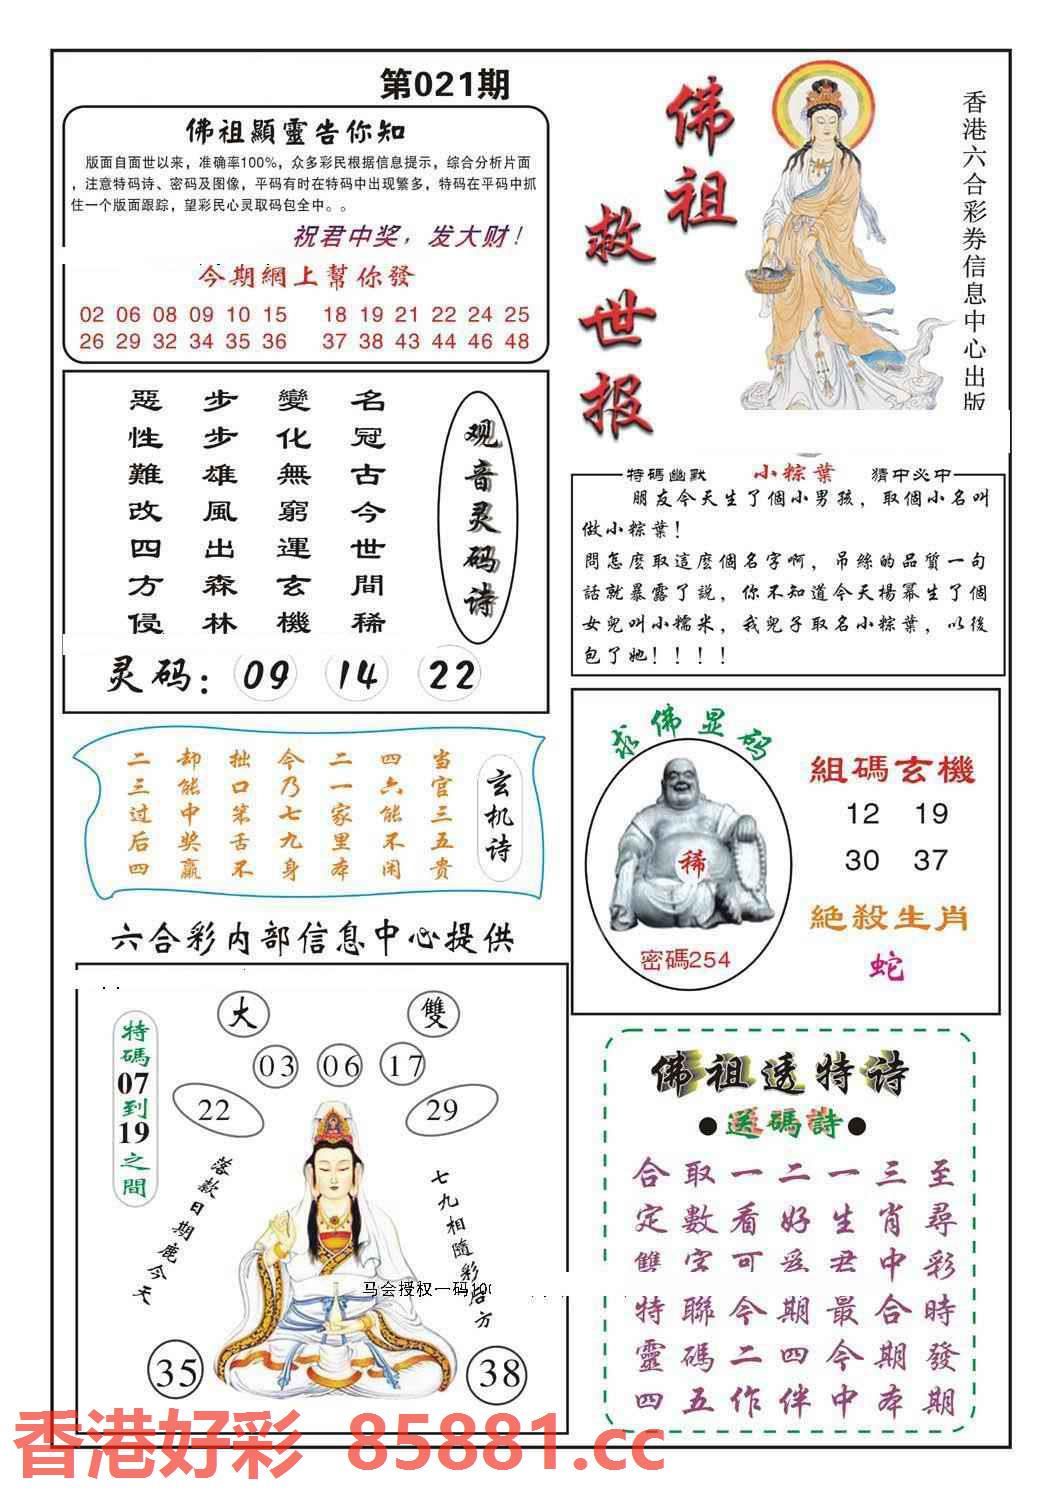 第021期
佛祖顯靈告你知
版面自面世以来，准确率100%，众多彩民根据信息提示，综合分析片面
，注意特码诗、密码及图像，平码有时在特码中出现繁多，特码在平码中抓
住一个版面跟踪，望彩民心灵取码包全中。。
祝君中奖，发大财！
今期網上幫你發
02 06 08 09 10 15 18 19 21 22 24 25
26 29 32 34 35 36 37 38 43 44 46 48
佛祖
救世报
香港六合彩券信息中心出版
观音灵码诗
名冠古今世間稀
變化無窮運玄機
步步雄風出森林
惡性難改四方侵
灵码：09 14 22
特碼幽默 小粽葉 猜中必中
朋友今天生了個小男孩，取個小名叫
做小粽葉！
問怎麼取這麼個名字啊，吊絲的品質一句
話就暴露了説，你不知道今天楊冪生了個
女兒叫小糯米，我兒子取名小粽葉，以後
包了她！！！！
玄机诗
当官三五贵
四六能不闲
二一家里本
今乃七九身
拙口笨舌不
却能中奖赢
二三过后四
求佛显码
稀
密碼254
組碼玄機
12 19
30 37
絕殺生肖
蛇
六合彩内部信息中心提供
大 雙
03 06 17
22 29
特碼07到19之間
落款日期鹿今天
七九相隨彩后方
马会授权一码10
35 38
佛祖透特诗
●送碼詩●
至尋彩時發期
三肖中合期本
一生君最今中
二好爲期四伴
一看可今二作
取數字聯碼五
合定雙特靈四
香港好彩 85881.cc